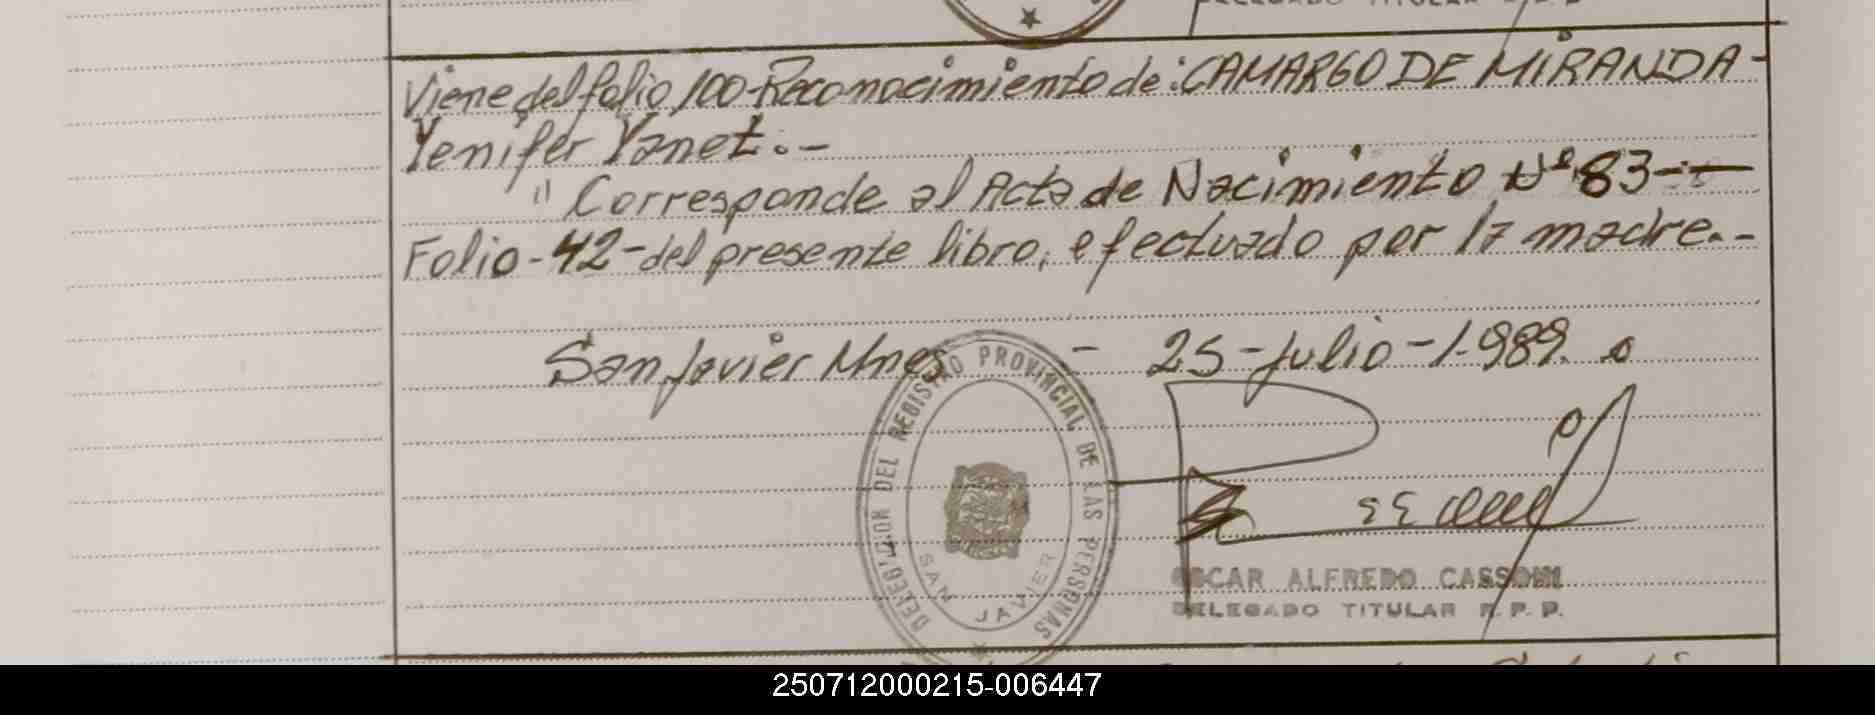 DELEGADO TITULAR R.P.P
Viene del folio 100-Reconocimiento de: CAMARGO DE MIRANDA-
Yenifer Yanet.-
" Corresponde al Acta de Nacimiento Nº 83--
Folio-42-del presente libro, efectuado por la madre.-
San Javier Mnes - 25-julio-1.989.
DELEGACION DEL REGISTRO PROVINCIAL DE LAS PERSONAS
SAN JAVIER
OSCAR ALFREDO CASSONI
DELEGADO TITULAR R.P.P.
250712000215-006447